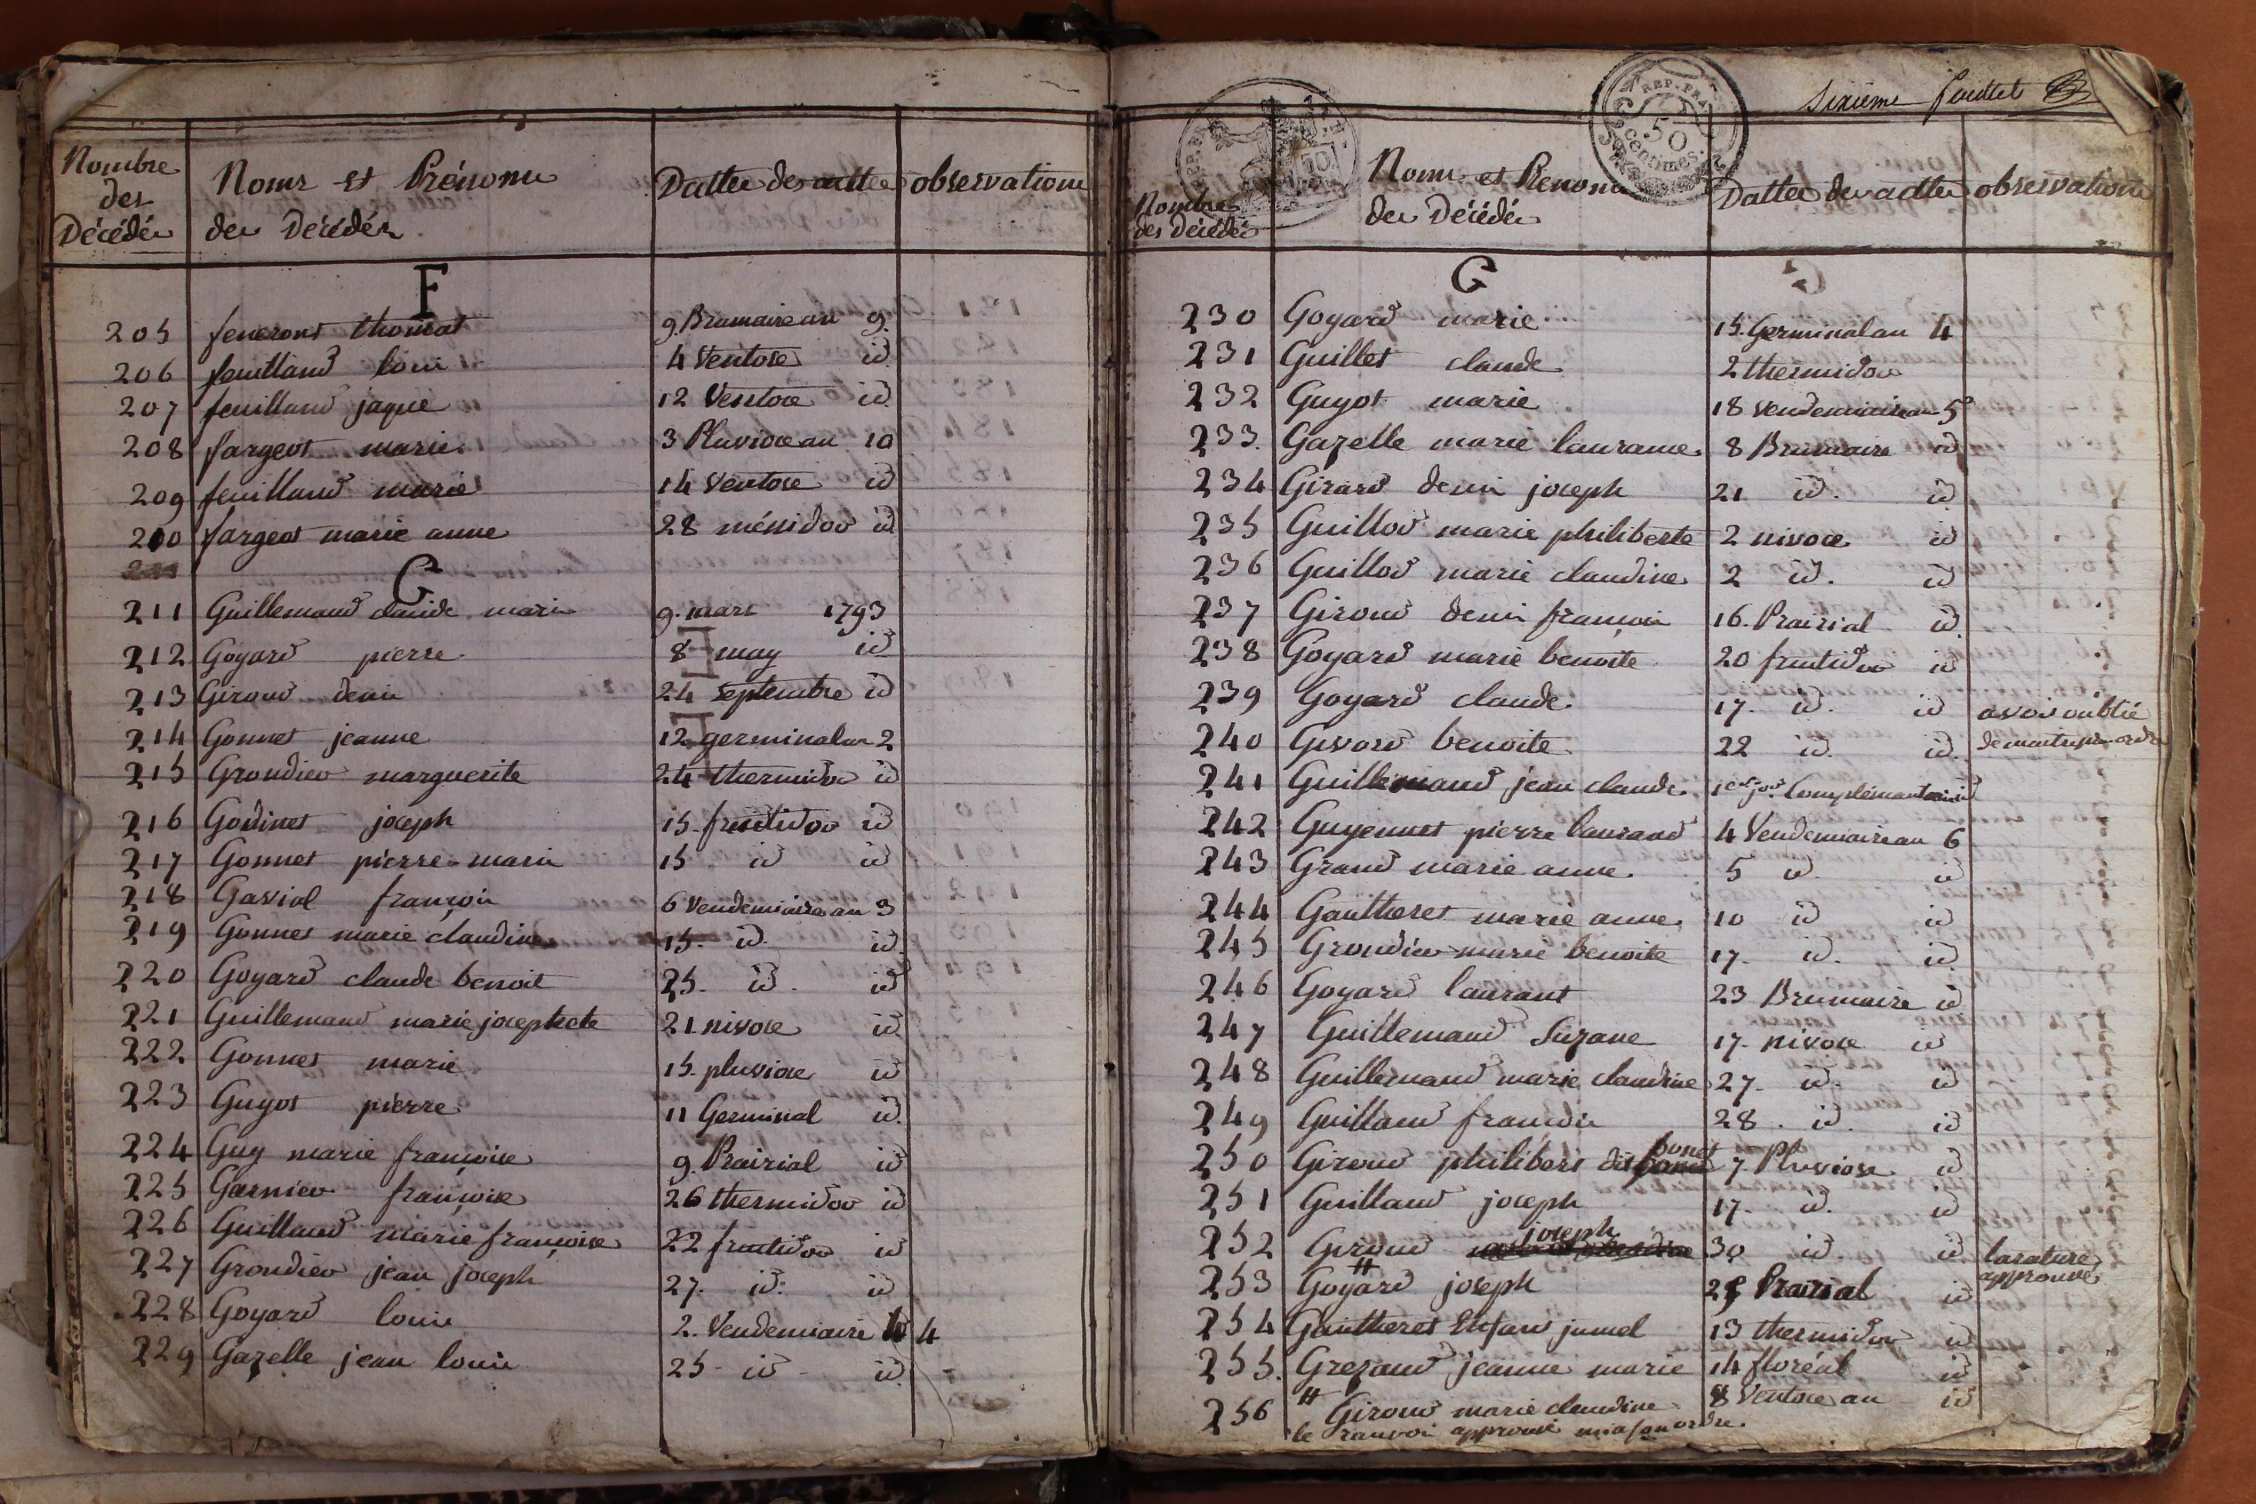 Nombre des Décédés
Noms et Prénoms des Décédés
Dattes des acttes
observations
F
205 feneront thomas 9 Brumaire an 9.
206 feuilland louis 4 Ventose id
207 feuilland jaque 12 Ventose id
208 fargeot marie 3 Pluviose an 10
209 feuilland marie 14 Ventose id
210 fargeot marie anne 28 méssidor id
G
211 Guillemaud claude marie 9. mars 1793
212 Goyard pierre 8 may id
213 Giroud denis 24 septembre id
214 Gonnet jeanne 12 germinal an 2
215 Grondier marguerite 24 thermidor id
216 Godinet joseph 15 fructidor id
217 Gonnet pierre-marie 15 id id
218 Gaviol françois 6 Vendemiaire an 3
219 Gonnet marie claudine 15. id. id
220 Goyard claude benoit 25. id. id
221 Guillemaud marie josephete 21 nivose id
222 Gonnet marie 15. pluviose id
223 Guyot pierre 11 Germinal id.
224 Guy marie françoise 9. Prairial id
225 Garnier françoise 26 thermidor id
226 Guillaud marie françoise 22 fructidor id
227 Grondier jean joseph 27. id. id
228 Goyard louis 2. Vendemiaire 4
229 Gazelle jean louis 25 - id - id.
sixieme feuillet
REP. FRA.
50 centimes.
Nombre des décédés
Noms et Prenoms des Décédés
Dattes des acttes
observations
G
230 Goyard marie 15. Germinal an 4
231 Guillet claude 2 thermidor
232 Guyot marie 18 vendemiaire an 5e
233. Gazelle marie laurance 8 Brumaire id
234 Girard denis joseph 21 id. id
235 Guillod marie philiberte 2 nivose id
236 Guillod marie claudine 2 id. id
237 Giroud denis françois 16. Prairial id.
238 Goyard marie benoite 20 fructidor id
239 Goyard claude 17. id. id avoir oublié
240 Givord benoite 22 id. id. de mentre son ordre
241 Guillemaud jean claude 1er jour Complémantaire id
242 Guyennet pierre laurand 4 Vendemiaire an 6
243 Grand marie anne 5 id id
244 Gautheret marie anne 10 id id
245 Grondier marie benoite 17. id. id
246 Goyard laurant 23 Brumaire id
247 Guillemaud Suzane 17. nivose id
248 Guillemaud marie claudine 27. id. id
249 Guillaud françois 28. id. id
250 Giroud philibert dit bonet 7 Pluviose id
251 Guillaud joseph 17. id. id
252 Giroud joseph 30 id. id larature approuvé
253 Goyard joseph 21 Prairial id
254 Gautheret Enfant jumel 13 thermidor id
255. Grezaud jeanne marie 14 floréal id
256 # Giroud marie claudine 8 Ventose an id
le ranvoi approuvé mis a son ordre.